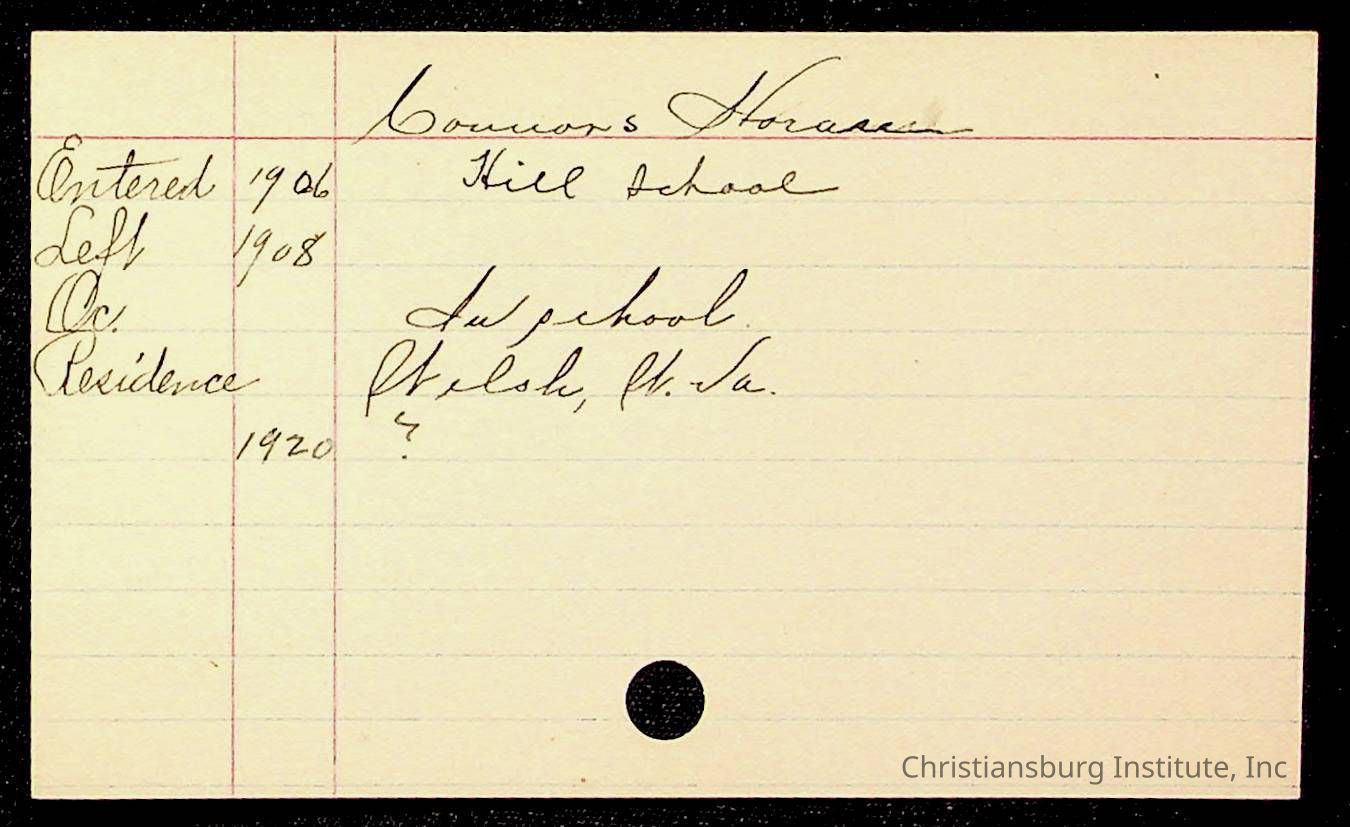 Connors Horace
Entered 1906 Hill School
Left 1908
Oc. In school
Residence Welsh, W. Va.
1920 ?
Christiansburg Institute, Inc